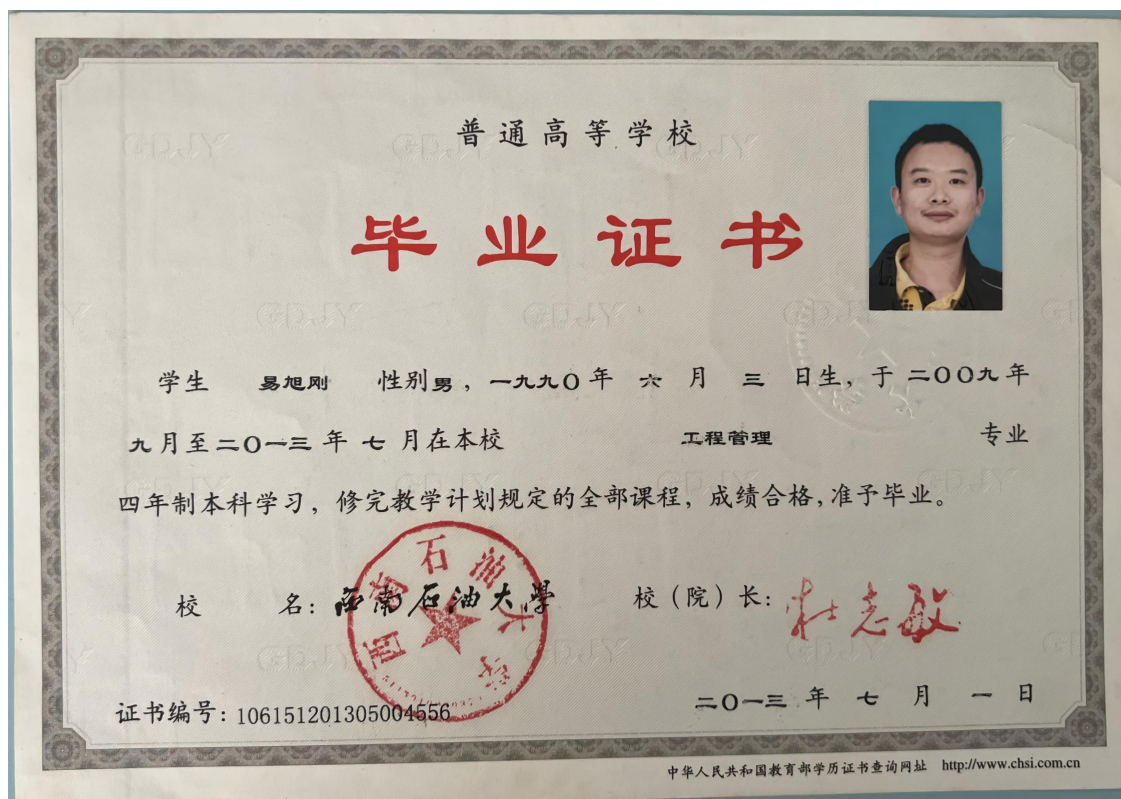 普通高等学校
毕业证书
学生 易旭刚 性别男，一九九〇年 六 月 三 日生，于二〇〇九年
九月至二〇一三年 七 月在本校 工程管理 专业
四年制本科学习，修完教学计划规定的全部课程，成绩合格，准予毕业。
校 名：西南石油大學 校（院）长：杜志敏
西南石油大学
二〇一三 年 七 月 一 日
证书编号：106151201305004556
中华人民共和国教育部学历证书查询网址 http://www.chsi.com.cn